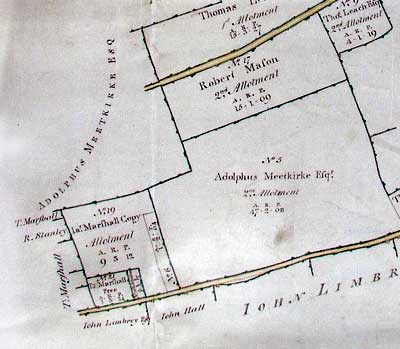 Thomas
1st Allotment
A. R. P.
No. 9
Thos. Leach Esqr.
2nd Allotment
A. R. P.
4 - 1 - 19
No. 17
Robert Mason
2nd Allotment
A. R. P.
15 - 1 - 00
ADOLPHUS MEETKIRKE ESQ
No. 5
Adolphus Meetkirke Esqr.
2nd Allotment
A. R. P.
47 - 2 - 08
T. Marshall
R. Stanley
T. Marshall
No. 19
Jas. Marshall Copy
Allotment
A. R. P.
9 3 12
Marshall
Free
No. 6
John Limbrey Esq
John Hall
JOHN LIMBR